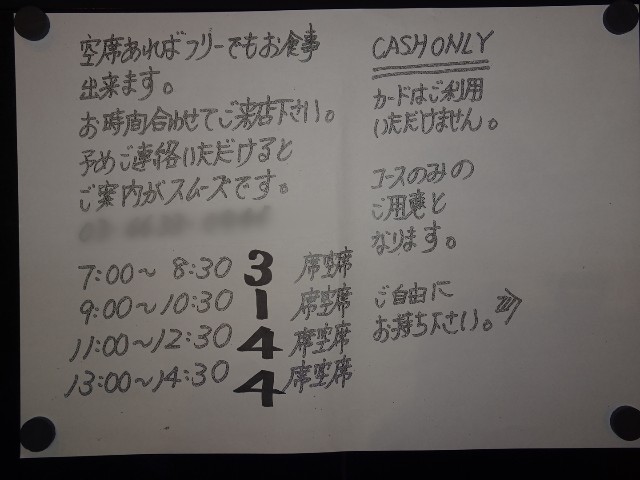 空席あればフリーでもお食事
出来ます。
お時間合わせてご来店下さい。
予めご連絡いただけると
ご案内がスムーズです。
7:00〜8:30 3 席空席
9:00〜10:30 1 席空席
11:00〜12:30 4 席空席
13:00〜14:30 4 席空席
CASH ONLY
カードはご利用
いただけません。
コースのみの
ご用意と
なります。
ご自由に
お持ち下さい。